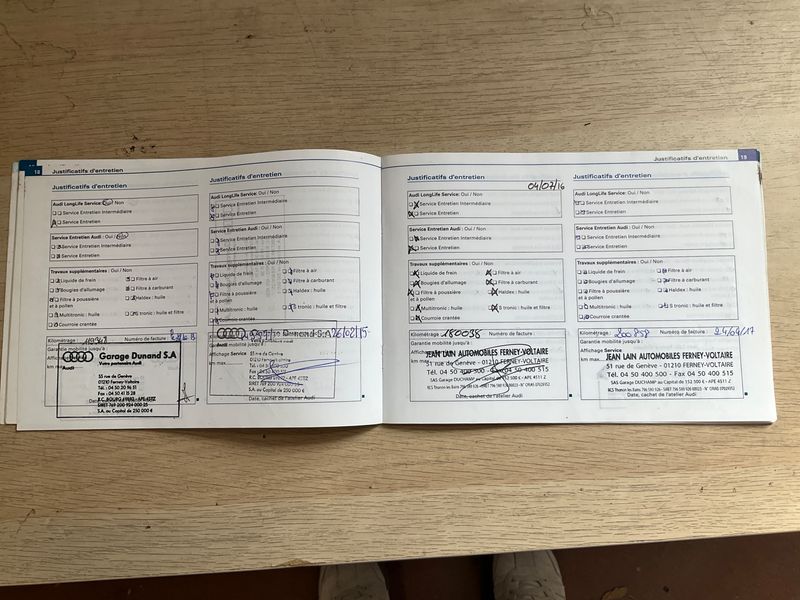 18
Justificatifs d'entretien
Justificatifs d'entretien
Audi LongLife Service: Oui / Non
Service Entretien Intermédiaire
Service Entretien
Service Entretien Audi : Oui / Non
Service Entretien Intermédiaire
Service Entretien
Travaux supplémentaires : Oui / Non
Liquide de frein
Filtre à air
Bougies d'allumage
Filtre à carburant
Filtre à poussière
et à pollen
Haldex : huile
Multitronic : huile
S tronic : huile et filtre
Courroie crantée
Kilométrage :
Numéro de facture :
Garantie mobilité jusqu'à :
Garage Dunand S.A
Votre partenaire Audi
Audi
55 rue de Genève
01210 Ferney-Voltaire
Tél. : 04 50 20 96 51
Fax : 04 50 41 15 28
S.A. au Capital de 250 000 €
Justificatifs d'entretien
Audi LongLife Service: Oui / Non
Service Entretien Intermédiaire
Service Entretien
Service Entretien Audi : Oui / Non
Service Entretien Intermédiaire
Service Entretien
Travaux supplémentaires : Oui / Non
Liquide de frein
Filtre à air
Bougies d'allumage
Filtre à carburant
Filtre à poussière
et à pollen
Haldex : huile
Multitronic : huile
S tronic : huile et filtre
Courroie crantée
Dunand S.A 26/02/15
Affichage Service
km max.
S.A. au Capital de 250 000 €
Date, cachet de l'atelier Audi
Justificatifs d'entretien
19
Justificatifs d'entretien
04/07/16
Audi LongLife Service: Oui / Non
Service Entretien Intermédiaire
Service Entretien
Service Entretien Audi : Oui / Non
Service Entretien Intermédiaire
Service Entretien
Travaux supplémentaires : Oui / Non
Liquide de frein
Filtre à air
Bougies d'allumage
Filtre à carburant
Filtre à poussière
et à pollen
Haldex : huile
Multitronic : huile
S tronic : huile et filtre
Courroie crantée
Kilométrage : 180038 Numéro de facture :
Garantie mobilité jusqu'à :
Affichage Service
km max.
JEAN LAIN AUTOMOBILES FERNEY-VOLTAIRE
51 rue de Genève - 01210 FERNEY-VOLTAIRE
Tél. 04 50 400 500 - Fax 04 50 400 515
SAS Garage DUCHAMP au Capital de 152 500 € - APE 4511 Z
Date, cachet de l'atelier Audi
Justificatifs d'entretien
Audi LongLife Service: Oui / Non
Service Entretien Intermédiaire
Service Entretien
Service Entretien Audi : Oui / Non
Service Entretien Intermédiaire
Service Entretien
Travaux supplémentaires : Oui / Non
Liquide de frein
Filtre à air
Bougies d'allumage
Filtre à carburant
Filtre à poussière
et à pollen
Haldex : huile
Multitronic : huile
S tronic : huile et filtre
Courroie crantée
Kilométrage : 200 858 Numéro de facture : 24/04/17
Garantie mobilité jusqu'à :
Affichage Service
km max.
JEAN LAIN AUTOMOBILES FERNEY-VOLTAIRE
51 rue de Genève - 01210 FERNEY-VOLTAIRE
Tél. 04 50 400 500 - Fax 04 50 400 515
SAS Garage DUCHAMP au Capital de 152 500 € - APE 4511 Z
Date, cachet de l'atelier Audi